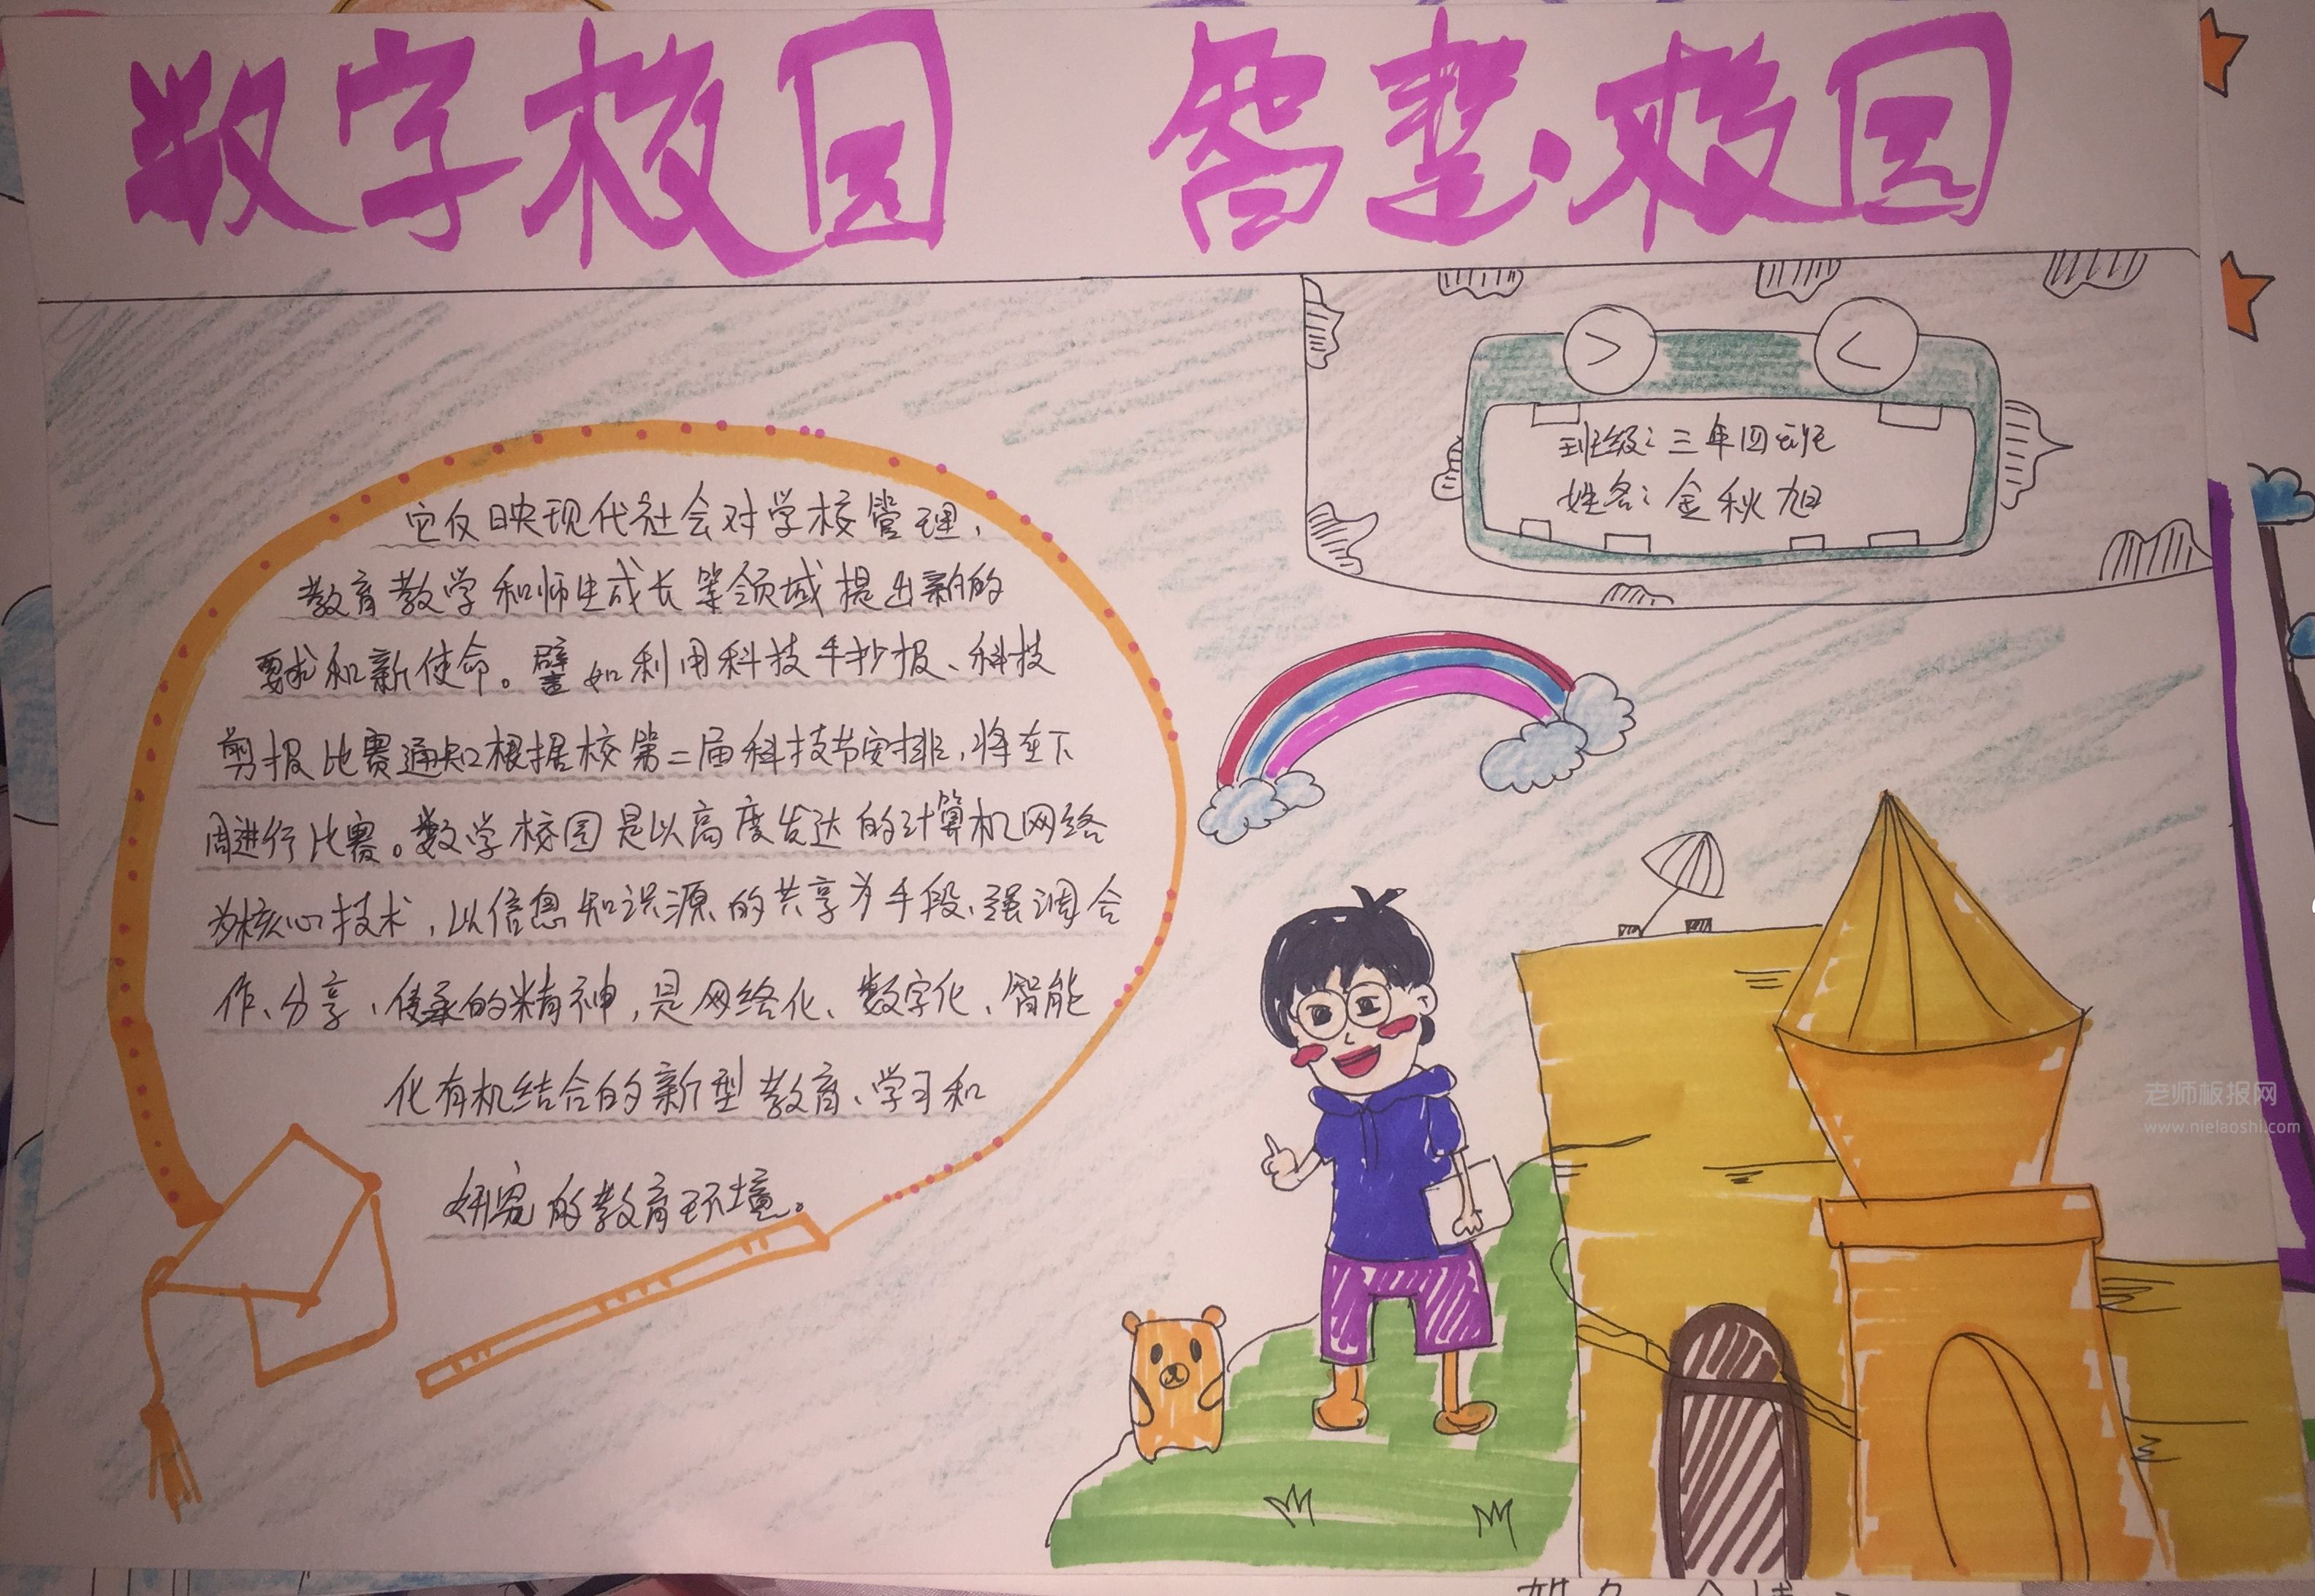 数字校园 智慧校园
班级:三年四班
姓名:金秋旭
它反映现代社会对学校管理,
教育教学和师生成长等领域提出新的
要求和新使命。譬如利用科技手抄报、科技
剪报比赛通知根据校第二届科技节安排,将在下
周进行比赛。数学校园是以高度发达的计算机网络
为核心技术,以信息知识源的共享为手段、强调合
作、分享、传承的精神,是网络化、数字化、智能
化有机结合的新型教育、学习和
研究的教育环境。
老师板报网
www.nielaoshi.com